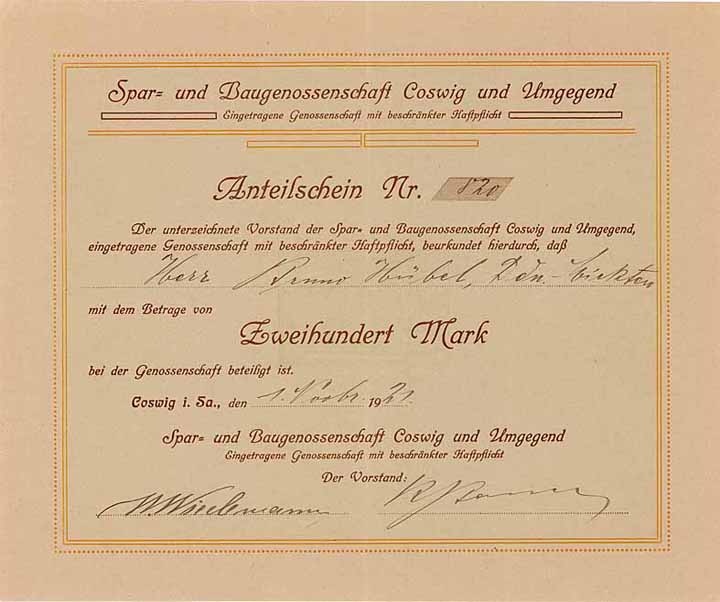 Spar= und Baugenossenschaft Coswig und Umgegend
Eingetragene Genossenschaft mit beschränkter Haftpflicht
Anteilschein Nr. 820
Der unterzeichnete Vorstand der Spar= und Baugenossenschaft Coswig und Umgegend,
eingetragene Genossenschaft mit beschränkter Haftpflicht, beurkundet hierdurch, daß
Herr Bruno Hübel, Ddn.-Mickten
mit dem Betrage von
Zweihundert Mark
bei der Genossenschaft beteiligt ist.
Coswig i. Sa., den 1. Novbr. 1921.
Spar= und Baugenossenschaft Coswig und Umgegend
Eingetragene Genossenschaft mit beschränkter Haftpflicht
Der Vorstand: